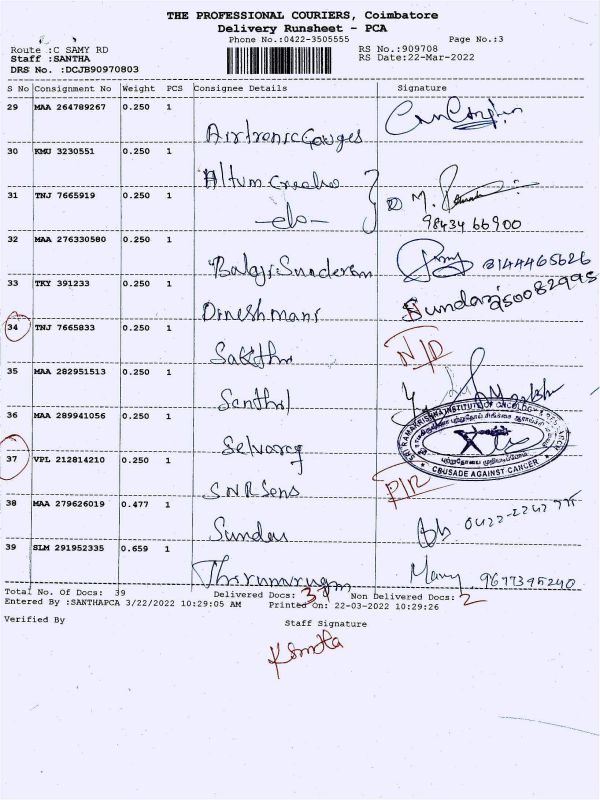 THE PROFESSIONAL COURIERS, Coimbatore
Delivery Runsheet - PCA
Phone No.:0422-3505555 Page No.:3
Route :C SAMY RD RS No.:909708
Staff :SANTHA RS Date:22-Mar-2022
DRS No. :DCJB90970803
S No Consignment No Weight PCS Consignee Details Signature
29 MAA 264789267 0.250 1
Airtronic Gauges
30 KMU 3230551 0.250 1
Altum Credo
31 TNJ 7665919 0.250 1
-do- M.
98434 66900
32 MAA 276330580 0.250 1
Balaji Sunderam
33 TKY 391233 0.250 1
Dinesh mani
34 TNJ 7665833 0.250 1
Sakthi N/D
35 MAA 282951513 0.250 1
Senthil
36 MAA 289941056 0.250 1
Selvaraj
SRI RAMAKRISHNA INSTITUTE OF ONCOLOGY
CRUSADE AGAINST CANCER
37 VPL 212814210 0.250 1
SNR Sons
38 MAA 279626019 0.477 1
Sundar
39 SLM 291952335 0.659 1
Thirumurugan Many 9677395240
Total No. Of Docs: 39 Delivered Docs: 37 Non Delivered Docs: 2
Entered By :SANTHAPCA 3/22/2022 10:29:05 AM Printed On: 22-03-2022 10:29:26
Verified By Staff Signature